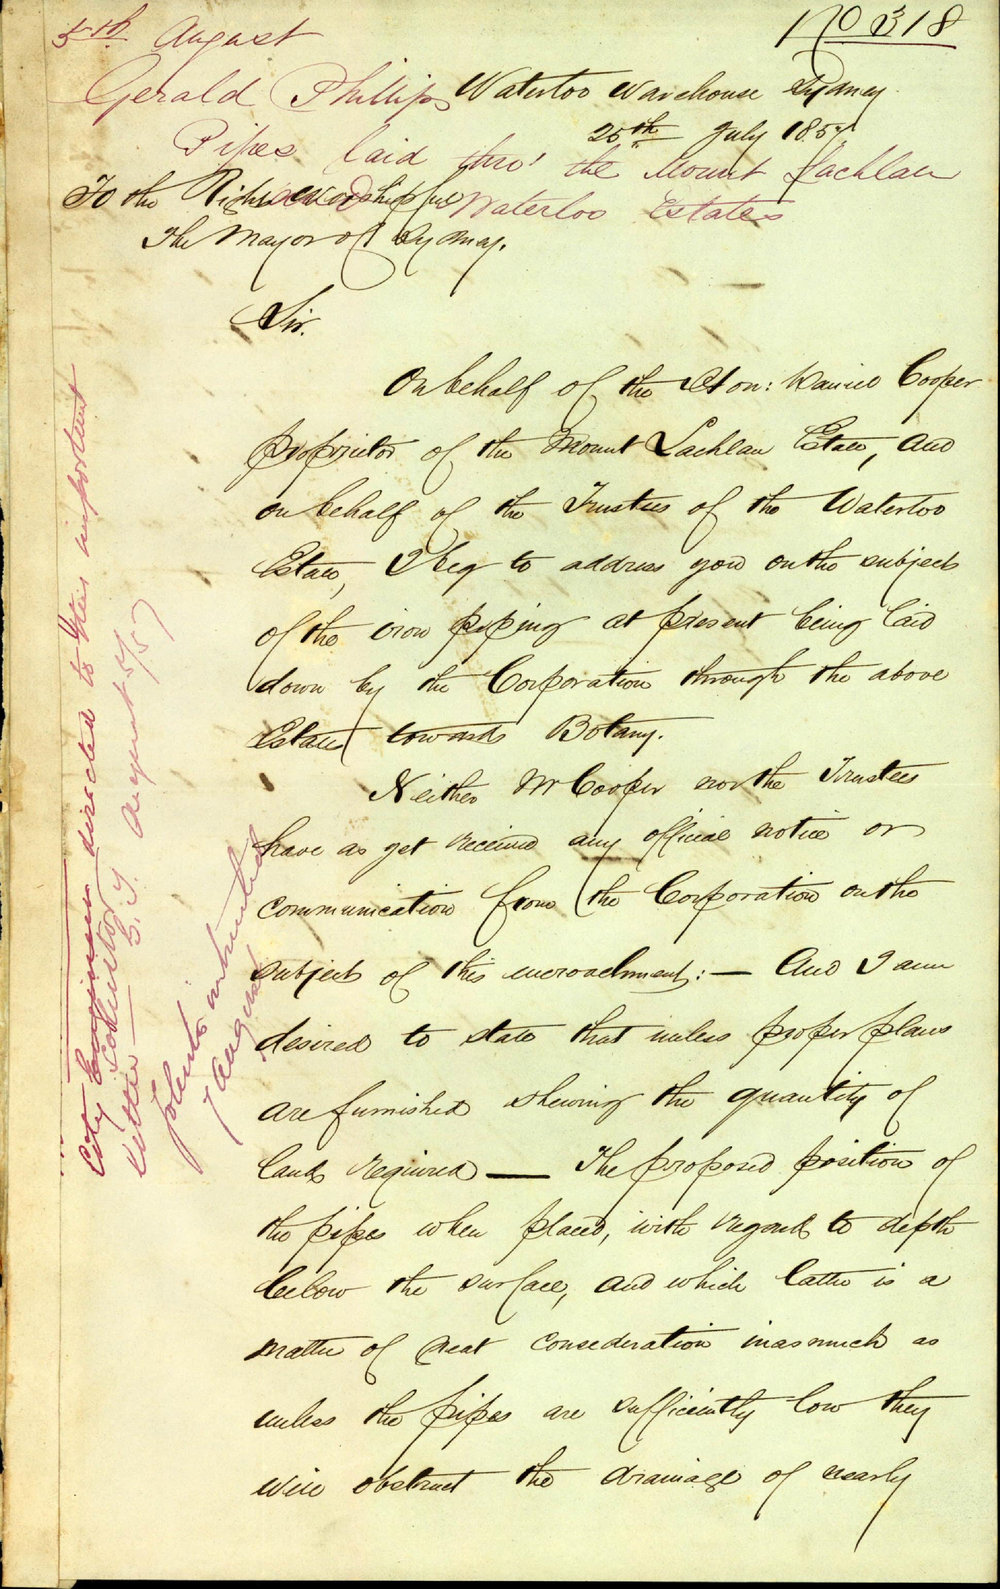 No 318
5th August
Gerald Phillips
Waterloo Warehouse Sydney
25th July 1857
Pipes laid thro' the Mount Lachlan
and Waterloo Estates
To the Right Worshipful
The Mayor of Sydney.
Sir.
On behalf of the Hon: Daniel Cooper
proprietor of the Mount Lachlan Estate, and
on behalf of the Trustees of the Waterloo
Estate, I beg to address you on the subject
of the iron piping at present being laid
down by the Corporation through the above
Estates towards Botany.
Neither Mr Cooper nor the Trustees
have as yet received any official notice or
communication from the Corporation on the
subject of this encroachment: — And I am
desired to state that unless proper plans
are furnished shewing the quantity of
land required — The proposed position of
the pipes when placed, with regard to depth
below the surface, and which latter is a
matter of great consideration inasmuch as
unless the pipes are sufficiently low they
will obstruct the drainage of nearly
City Engineer directed to this important
letter
Solicitor
August 5/57
instructed
7 August